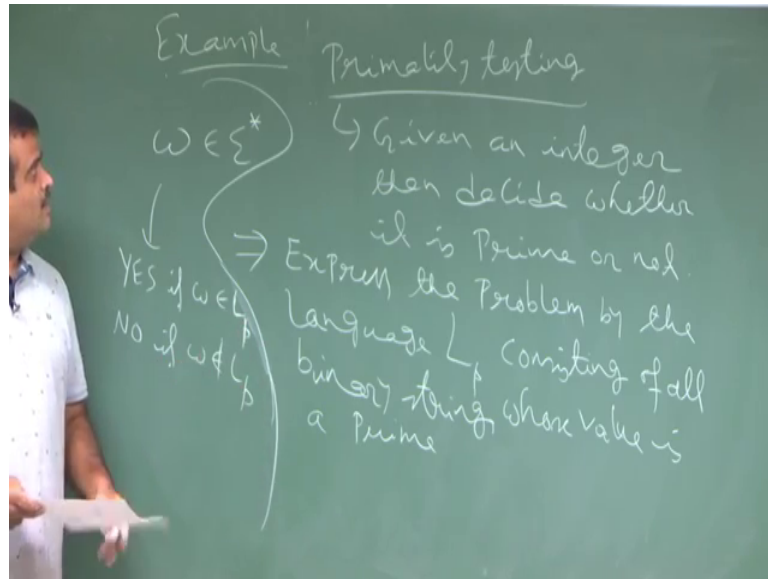 Example
ω ∈ Σ*
YES if ω ∈ Lp
NO if ω ∉ Lp
Primality testing
↳ Given an integer
then decide whether
it is Prime or not.
⇒ Express the Problem by the
Language Lp consisting of all
binary string whose value is
a Prime